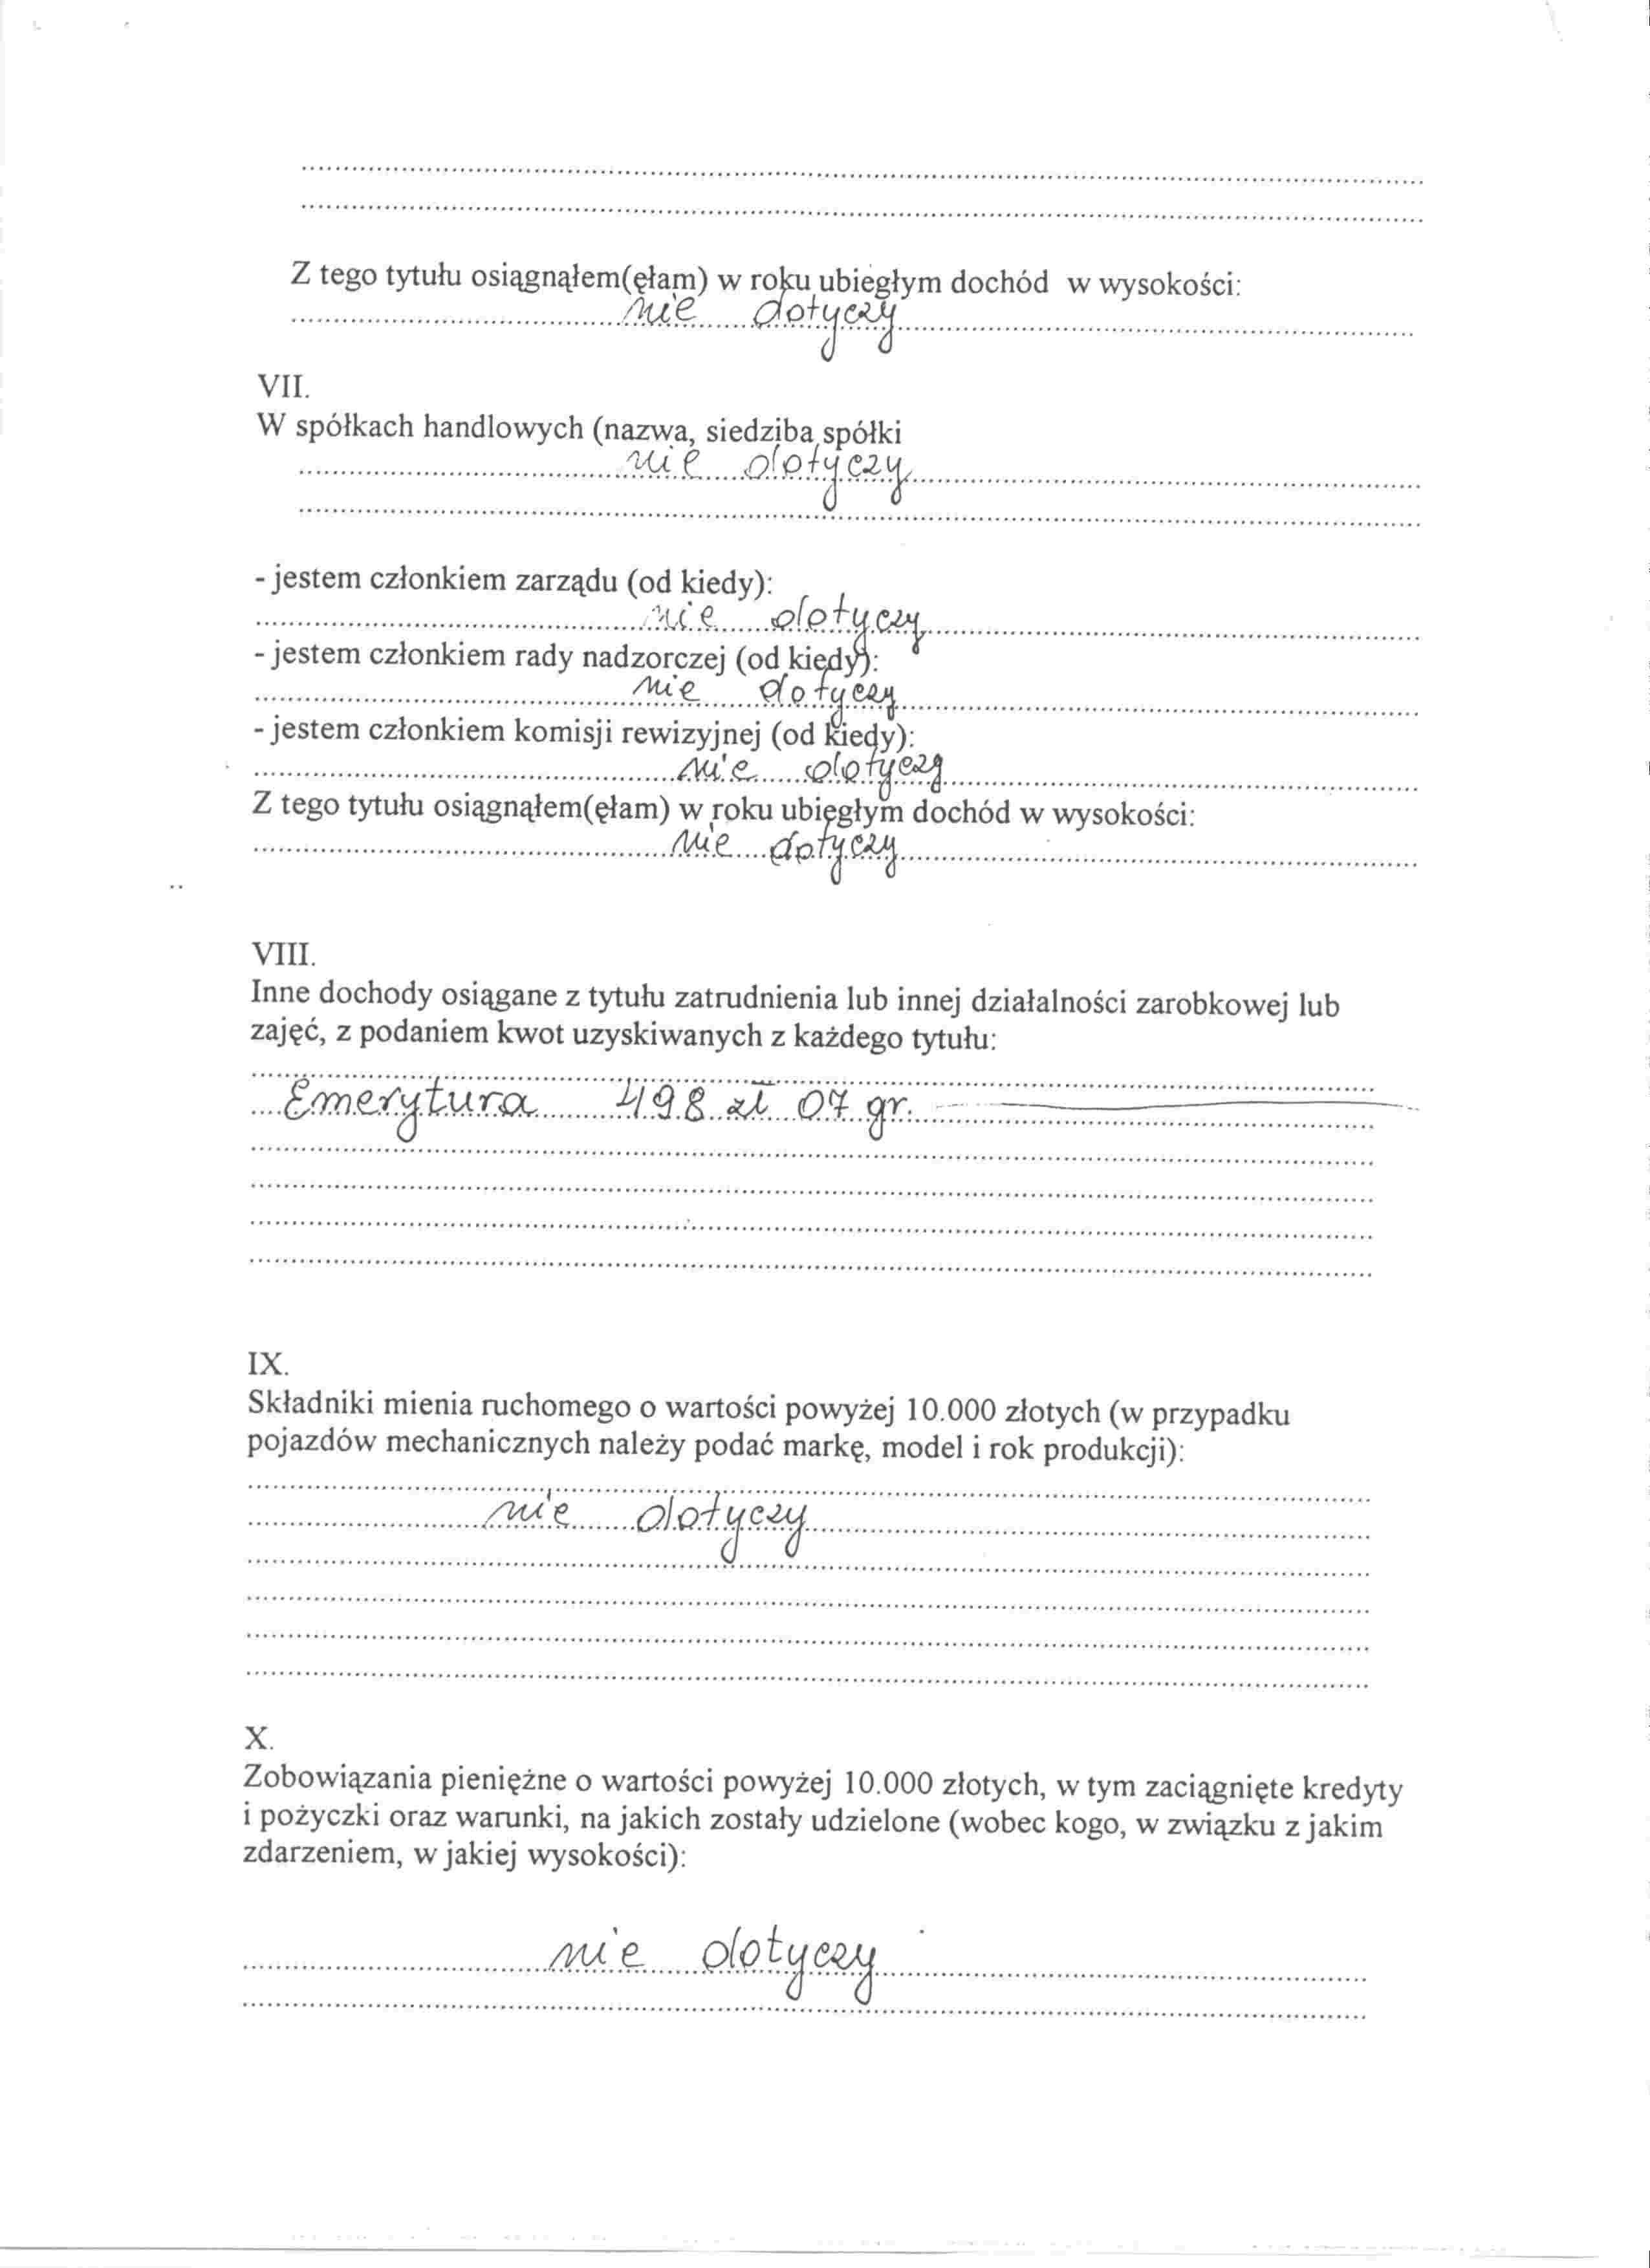 Z tego tytułu osiągnąłem(ęłam) w roku ubiegłym dochód w wysokości:
nie dotyczy
VII.
W spółkach handlowych (nazwa, siedziba spółki
nie dotyczy
- jestem członkiem zarządu (od kiedy):
nie dotyczy
- jestem członkiem rady nadzorczej (od kiedy):
nie dotyczy
- jestem członkiem komisji rewizyjnej (od kiedy):
nie dotyczy
Z tego tytułu osiągnąłem(ęłam) w roku ubiegłym dochód w wysokości:
nie dotyczy
VIII.
Inne dochody osiągane z tytułu zatrudnienia lub innej działalności zarobkowej lub
zajęć, z podaniem kwot uzyskiwanych z każdego tytułu:
Emerytura 498 zł 07 gr.
IX.
Składniki mienia ruchomego o wartości powyżej 10.000 złotych (w przypadku
pojazdów mechanicznych należy podać markę, model i rok produkcji):
nie dotyczy
X.
Zobowiązania pieniężne o wartości powyżej 10.000 złotych, w tym zaciągnięte kredyty
i pożyczki oraz warunki, na jakich zostały udzielone (wobec kogo, w związku z jakim
zdarzeniem, w jakiej wysokości):
nie dotyczy